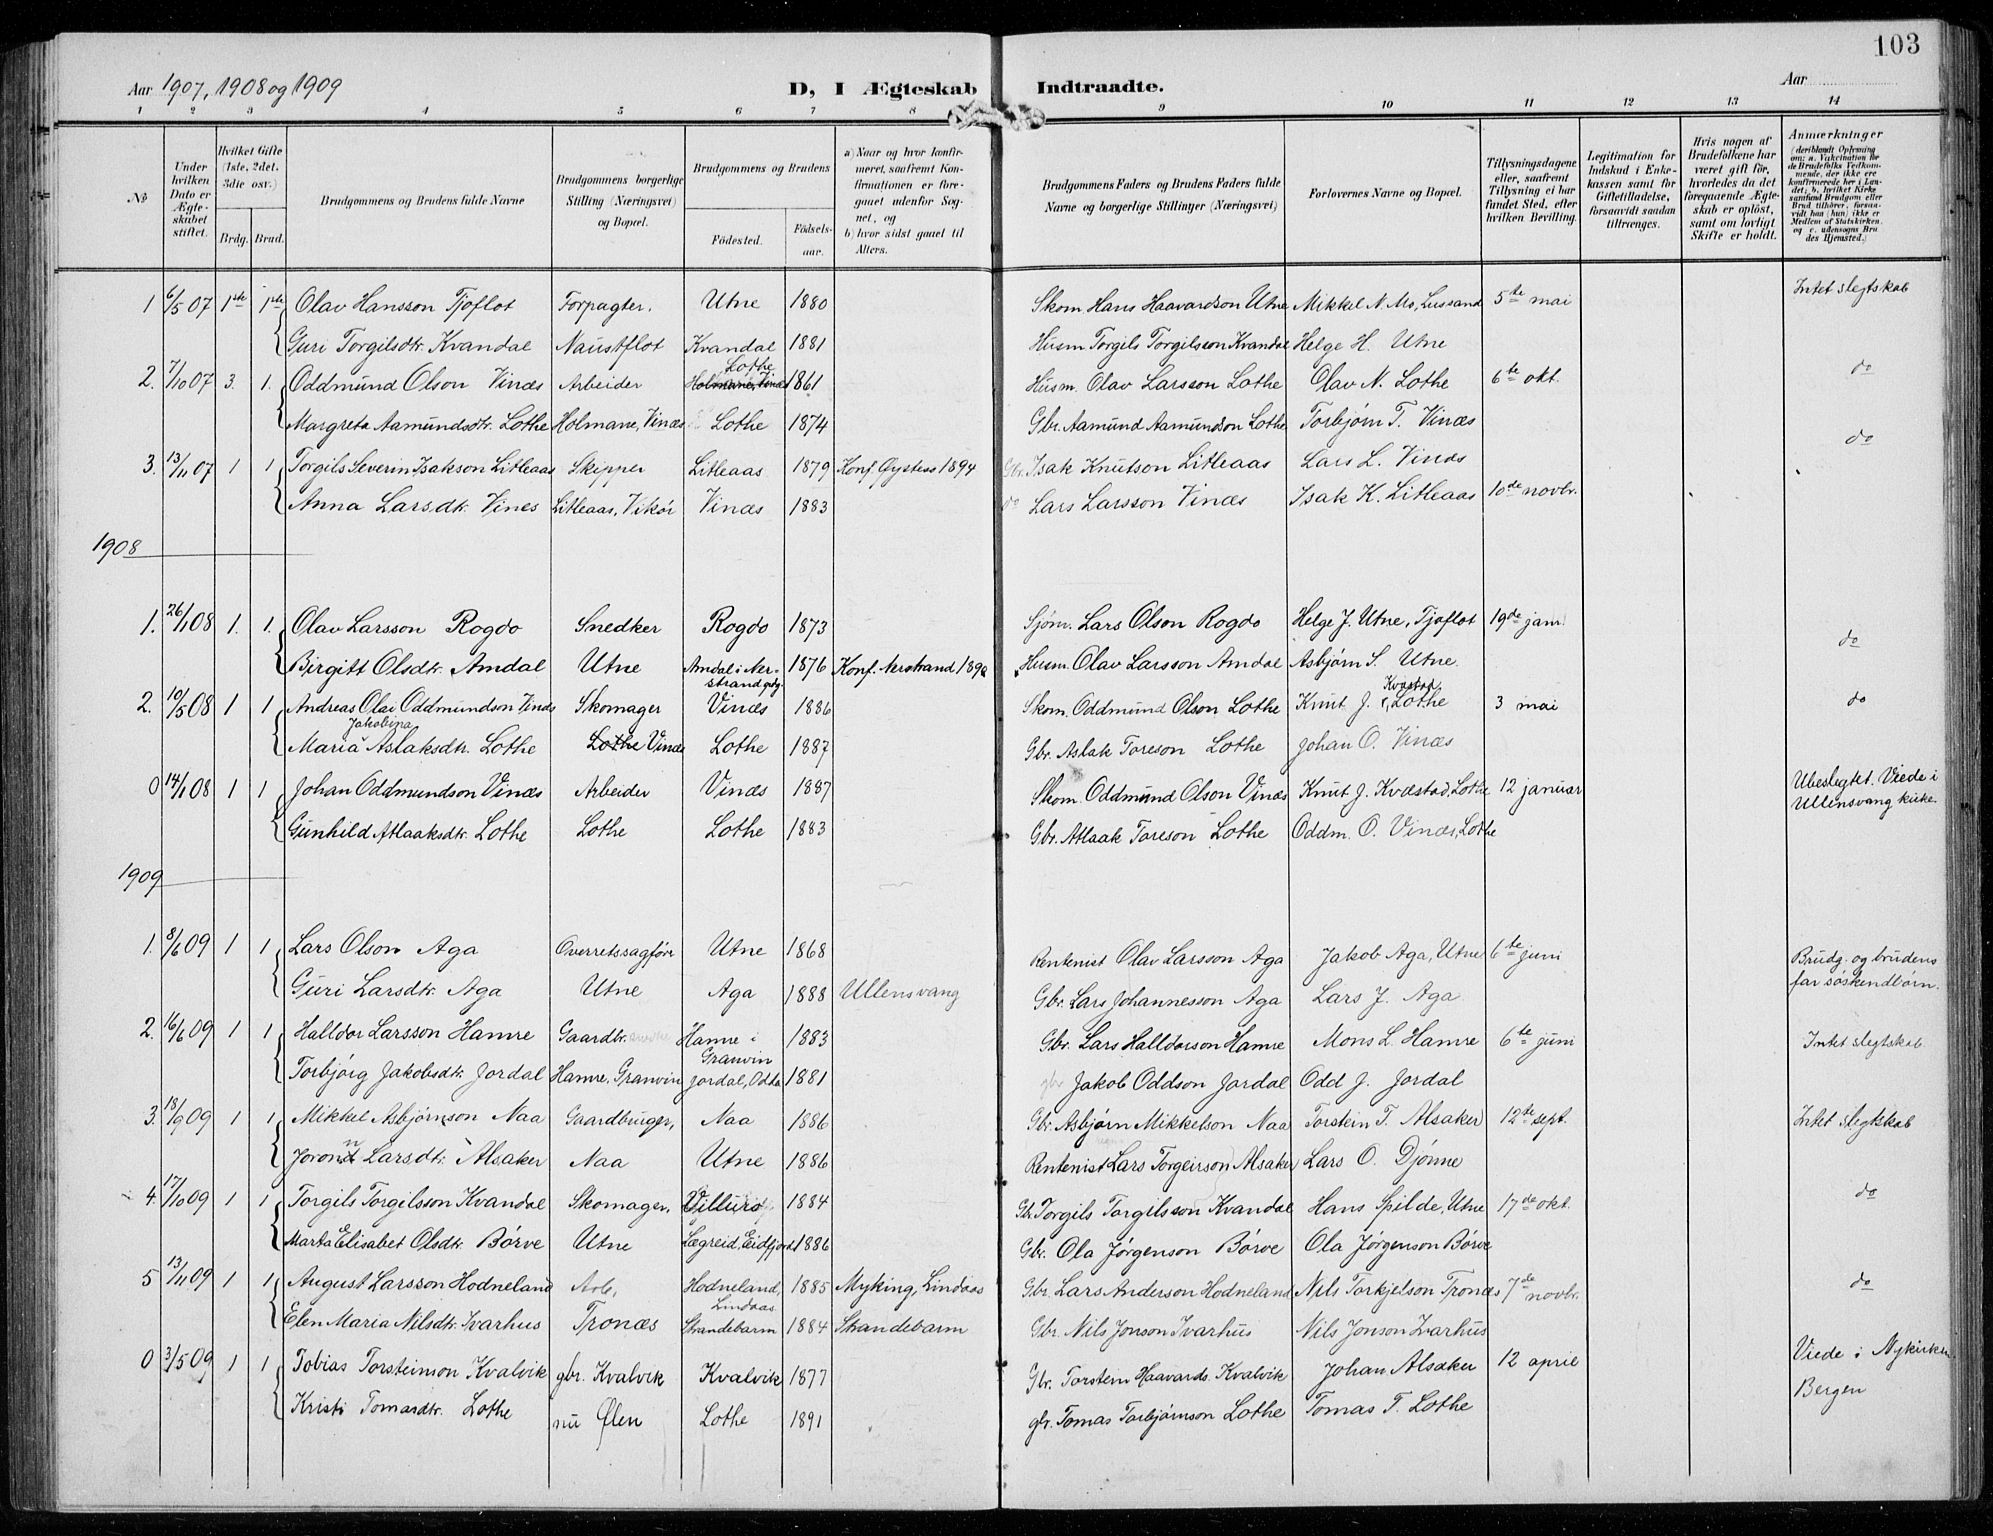 103
Aar 1907, 1908 og 1909 D, I Ægteskab Indtraadte. Aar
1 2 3 4 5 6 7 8 9 10 11 12 13 14
№
Under hvilken Dato er Ægteskabet stiftet.
Hvilket Gifte (1ste, 2det, 3die osv.)
Brdg. Brud.
Brudgommens og Brudens fulde Navne
Brudgommens borgerlige Stilling (Næringsvei) og Bopæl.
Brudgommens og Brudens
Födested. Födselsaar.
a) Naar og hvor konfirmeret, saafremt Konfirmationen er foregaaet udenfor Sognet, og
b) hvor sidst gaaet til Alters.
Brudgommens Faders og Brudens Faders fulde Navne og borgerlige Stillinger (Næringsvei)
Forlovernes Navne og Bopæl.
Tillysningsdagene eller, saafremt Tillysning ei har fundet Sted, efter hvilken Bevilling.
Legitimation for Indskud i Enkekassen samt for Giftetilladelse, forsaavidt saadan tiltrænges.
Hvis nogen af Brudefolkene har været gift för, hvorledes da det foregaaende Ægteskab er oplöst, samt om lovligt Skifte er holdt.
Anmærkninger (deriblandt Oplysning om: a. Vakcination för de Brudefolks Vedkommende, der ikke ere konfirmerede her i Landet; b. hvilket Kirkesamfund Brudgom eller Brud tilhörer, forsaavidt han (hun) ikke er Medlem af Statskirken, og c. udensogns Brudes Hjemsted.)
1 6/5 07 1ste 1ste Olav Hansson Tjoflot Forpagter. Utne 1880 Skom. Hans Haavardson Utne Mikkel N. Mo, Lussand 5te mai Intet slegtskab
Guri Torgilsdtr. Kvandal Naustflot Kvandal 1881 Husm Torgils Torgilsson Kvandal Helge H. Utne
2. 7/10 07 3. 1. Oddmund Olson Vinæs Arbeider Holmane, Vinæs Lothe 1861 Husm. Olav Larsson Lothe Olav N. Lothe 6te okt. do
Margreta Aamundsdtr. Lothe Holmane, Vinæs Lothe 1874 Gbr. Aamund Aamundson Lothe Torbjørn T. Vinæs
3. 13/11 07 1 1 Torgils Severin Isakson Litleaas Skipper Litleaas 1879 Konf. Øystess 1894 Gbr. Isak Knutson Litleaas Lars L. Vinæs do
Anna Larsdtr. Vines Litleaas, Vikör Vinæs 1883 do Lars Larsson Vinæs Isak K. Litleaas 10de novbr.
1908
1. 26/1 08 1. 1. Olav Larsson Rogdo Snedker Rogdo 1873 Sjøm. Lars Olson Rogdo Helge J. Utne, Tjoflot 19de jan. do
Birgitt Olsdtr. Amdal Utne Amdal i Nerstrand 1876 Konf. Nerstrand Husm. Olav Larsson Amdal Asbjørn S. Utne.
2. 10/5 08 1 1 Andreas Olai Oddmundson Vinæs Skomager Vinæs 1886 Skom. Oddmund Olson Lothe Knut J. Kvæstad, Lothe 3 mai do
Maria Jakobina Aslaksdtr. Lothe Lothe Vinæs Lothe 1887 Gbr. Aslak Toreson Lothe Johan O. Vinæs
0 14/1 08 1 1 Johan Oddmundson Vinæs Arbeider Vinæs 1887 Skom. Oddmund Olson Vinæs Knut J. Kvæstad, Lothe 12 januar Ubeslegtet. Viede i Ullensvang kirke.
Gunhild Atlaaksdtr. Lothe Lothe Lothe 1883 Gbr. Atlaak Toreson Lothe Oddm. O. Vinæs, Lothe
1909
1. 8/6 09 1 1 Lars Olson Aga Overretssagfører Utne 1868 Rentenist Olav Larsson Aga Jakob Aga, Utne 6te juni Brudg. og brudens far søskendbørn.
Guri Larsdtr. Aga Utne Aga 1888 Ullensvang Gbr. Lars Johannesson Aga Lars J. Aga
2. 16/6 09 1 1 Halldor Larsson Hamre Gaardbr. Hamre i Granvin 1883 Gbr. Lars Halldorson Hamre Mons L. Hamre 6te juni Intet slegtskab
Torbjørg Jakobsdtr. Jordal Hamre, Granvin Jordal, Odda 1881 gbr. Jakob Oddson Jordal Odd J. Jordal
3. 18/9 09 1 1 Mikkel Asbjørnson Naa Gaardbruger, Naa 1886 Gbr. Asbjørn Mikkelson Naa Torstein T. Alsaker 12te sept. Intet slegtskab
Joronn Larsdtr. Alsaker Naa Utne 1886 Rentenist Lars Torgeirson Alsaker Lars O. Djønne
4. 17/10 09 1 1 Torgils Torgilsson Kvandal Skomager, 1884 Gbr. Torgils Torgilsson Kvandal Hans Spilde, Utne 17de okt. do
Marta Elisabet Olsdtr. Børve Utne Lægreid, Eidfjord 1886 Gbr. Ola Jørgenson Børve Ola Jørgenson Børve
5 13/11 09 1 1 August Larsson Hodneland Arb. Hodneland, Lindaas 1885 Myking, Lindaas Gbr. Lars Anderson Hodneland Nils Torkjelson Tronæs 7de novbr. do
Elen Maria Nilsdtr. Ivarhus Tronæs Strandebarm 1884 Strandebarm Gbr. Nils Jonson Ivarhus Nils Jonson Ivarhus
0 3/5 09 1 1 Tobias Torsteinson Kvalvik gbr. Kvalvik Kvalvik 1877 Gbr. Torstein Haavards. Kvalvik Johan Alsaker 12 april Viede i Nykirken Bergen
Kristi Tomasdtr. Lothe nu Ølen Lothe 1891 gbr. Tomas Torbjørnson Lothe Tomas T. Lothe